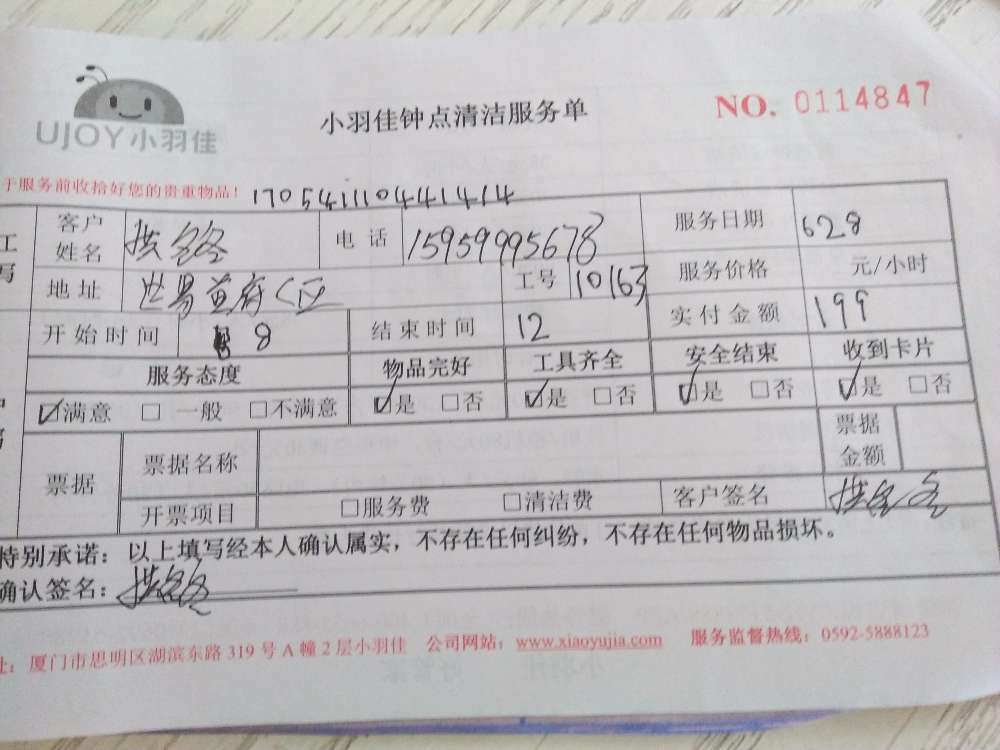 UJOY小羽佳
小羽佳钟点清洁服务单
NO. 0114847
于服务前收拾好您的贵重物品!
17054111044 1414
客户姓名
电话 15959995678
服务日期 628
地址 世
工号 10163
服务价格 元/小时
开始时间 8
结束时间 12
实付金额 199
服务态度 物品完好 工具齐全 安全结束 收到卡片
☑满意 □一般 □不满意 ☑是 □否 ☑是 □否 ☑是 □否 ☑是 □否
票据 票据名称 票据金额
开票项目 □服务费 □清洁费 客户签名
特别承诺:以上填写经本人确认属实,不存在任何纠纷,不存在任何物品损坏。
确认签名:
址:厦门市思明区湖滨东路319号A幢2层小羽佳 公司网站:www.xiaoyujia.com 服务监督热线:0592-5888123